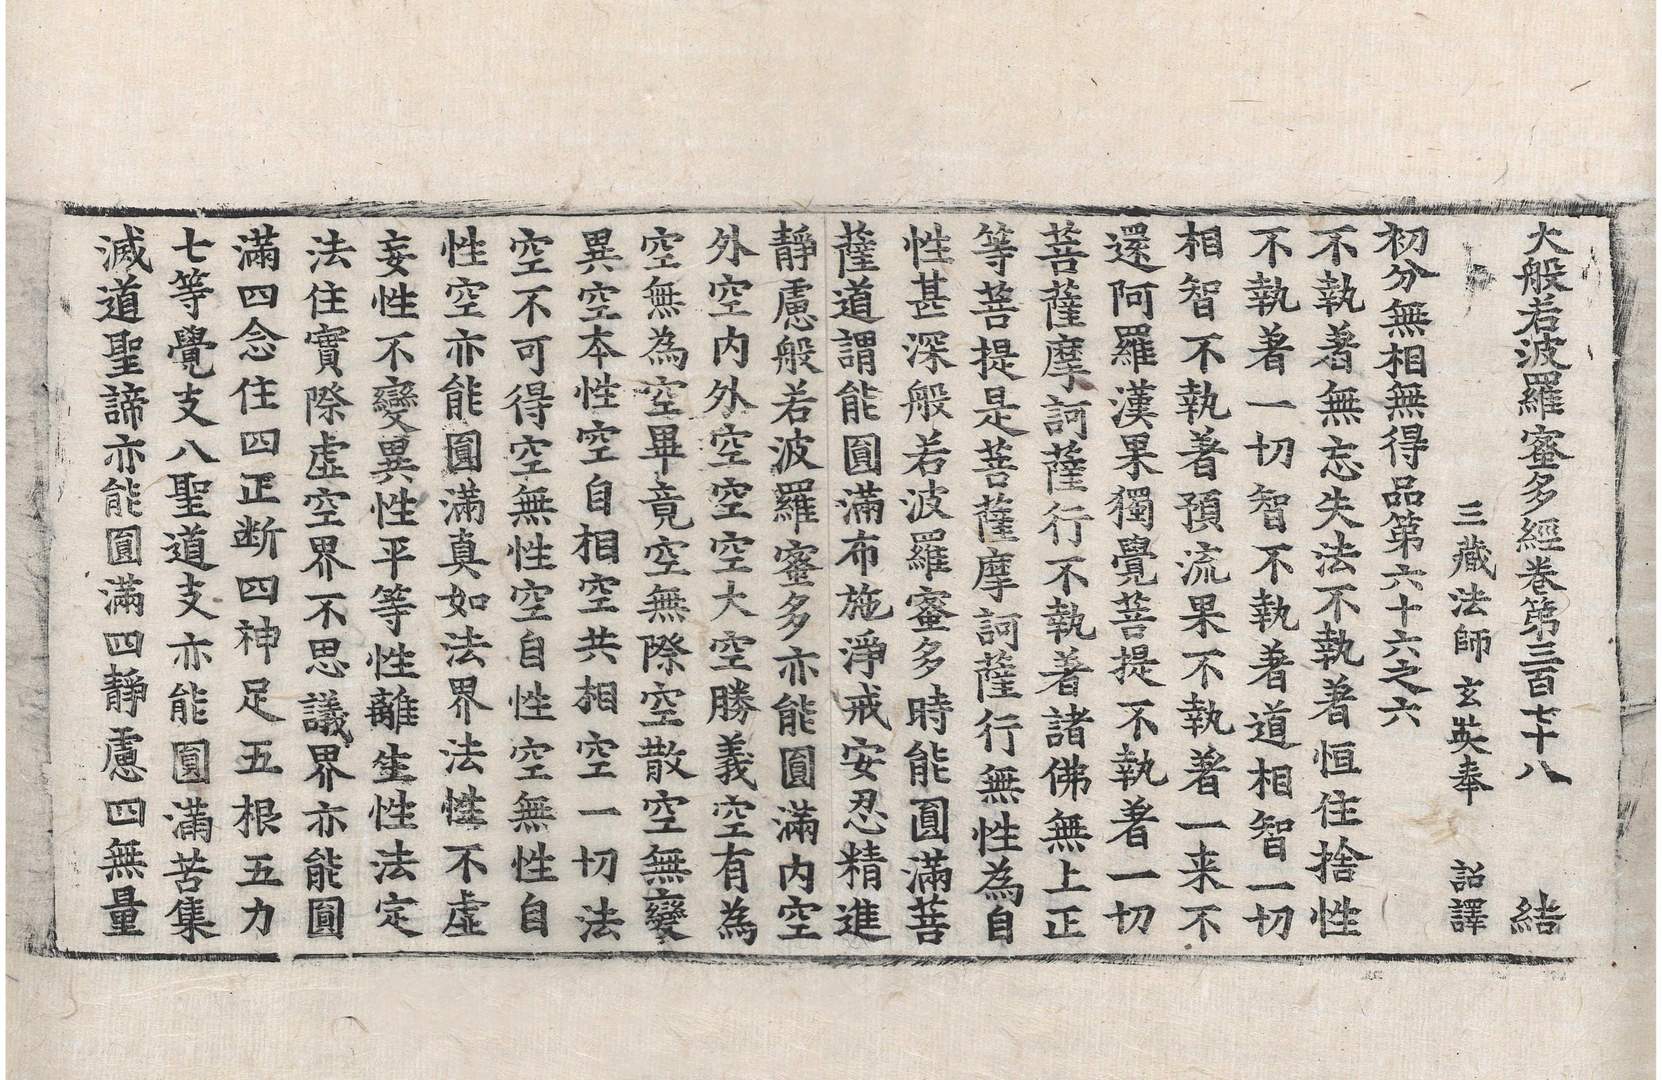 大般若波羅蜜多經卷第三百七十八 結
三藏法師玄奘奉 詔譯
初分無相無得品第六十六之六
不執著無忘失法不執著恒住捨性
不執著一切智不執著道相智一切
相智不執著預流果不執著一来不
還阿羅漢果獨覺菩提不執著一切
菩薩摩訶薩行不執著諸佛無上正
等菩提是菩薩摩訶薩行無性為自
性甚深般若波羅蜜多時能圓滿菩
薩道謂能圓滿布施淨戒安忍精進
靜慮般若波羅蜜多亦能圓滿內空
外空內外空空空大空勝義空有為
空無為空畢竟空無際空散空無變
異空本性空自相空共相空一切法
空不可得空無性空自性空無性自
性空亦能圓滿真如法界法性不虛
妄性不變異性平等性離生性法定
法住實際虛空界不思議界亦能圓
滿四念住四正断四神足五根五力
七等覺支八聖道支亦能圓滿苦集
滅道聖諦亦能圓滿四靜慮四無量